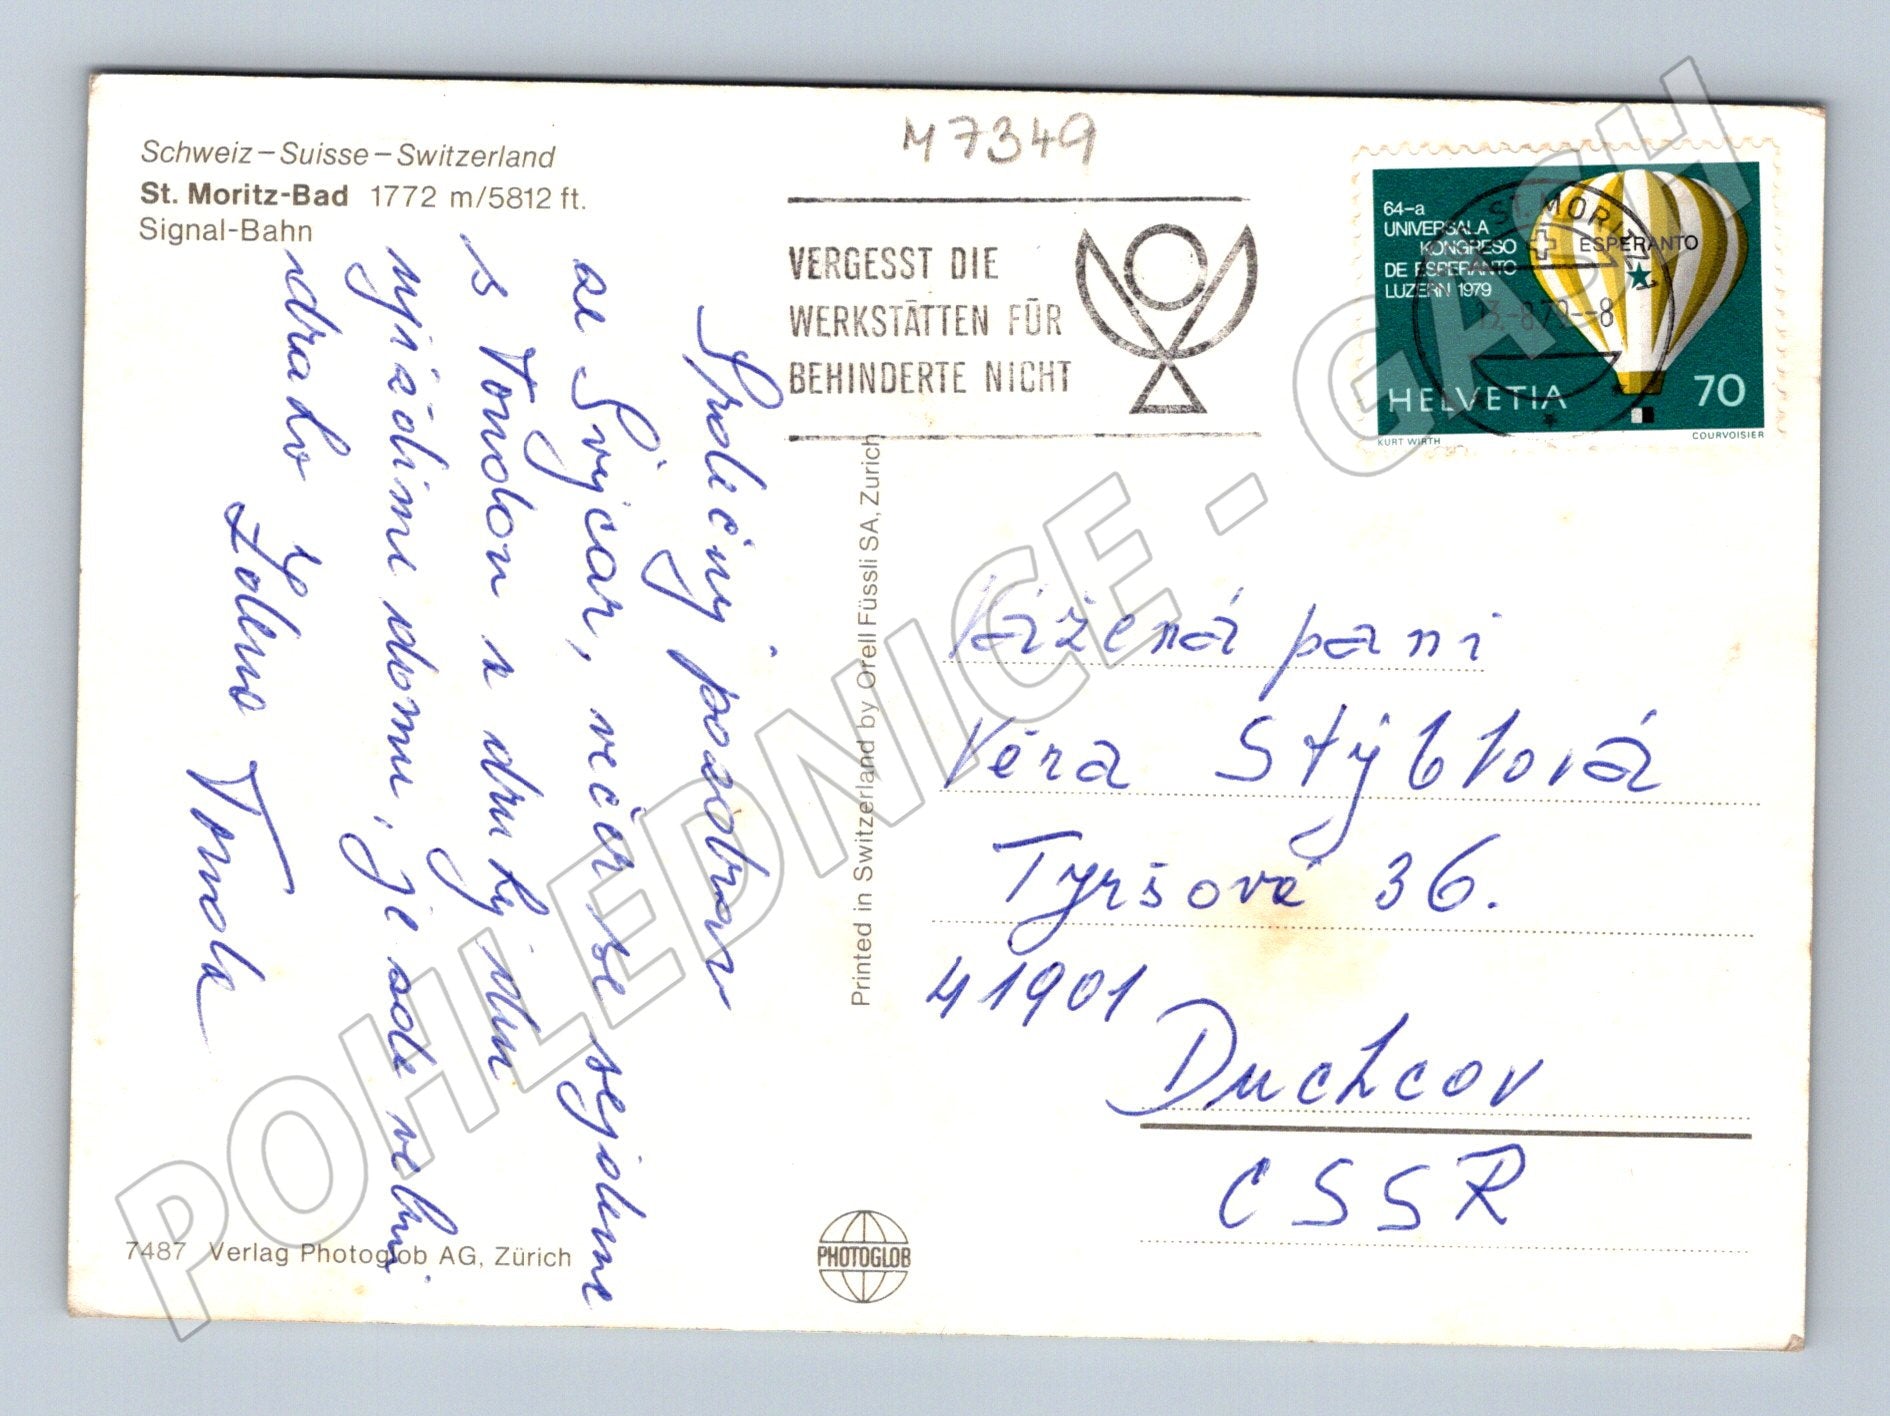 Schweiz – Suisse – Switzerland
St. Moritz-Bad 1772 m/5812 ft.
Signal-Bahn
M 7349
VERGESST DIE
WERKSTÄTTEN FÜR
BEHINDERTE NICHT
64-a
UNIVERSALA
KONGRESO
DE ESPERANTO
LUZERN 1979
ESPERANTO
HELVETIA 70
KURT WIRTH COURVOISIER
ST. MORITZ 1
13.-8.79--8
Společný pozdrav
ze Švýcar, večer se sejdeme
s Tondou a druhý den
vyjíždíme domu, je zde velmi
draho
Tonda
Printed in Switzerland by Orell Füssli SA, Zurich
Vážená pani
Věra Stýblová
Tyršová 36.
41901
Duchcov
CSSR
7487 Verlag Photoglob AG, Zürich
PHOTOGLOB
POHLEDNICE - GASH